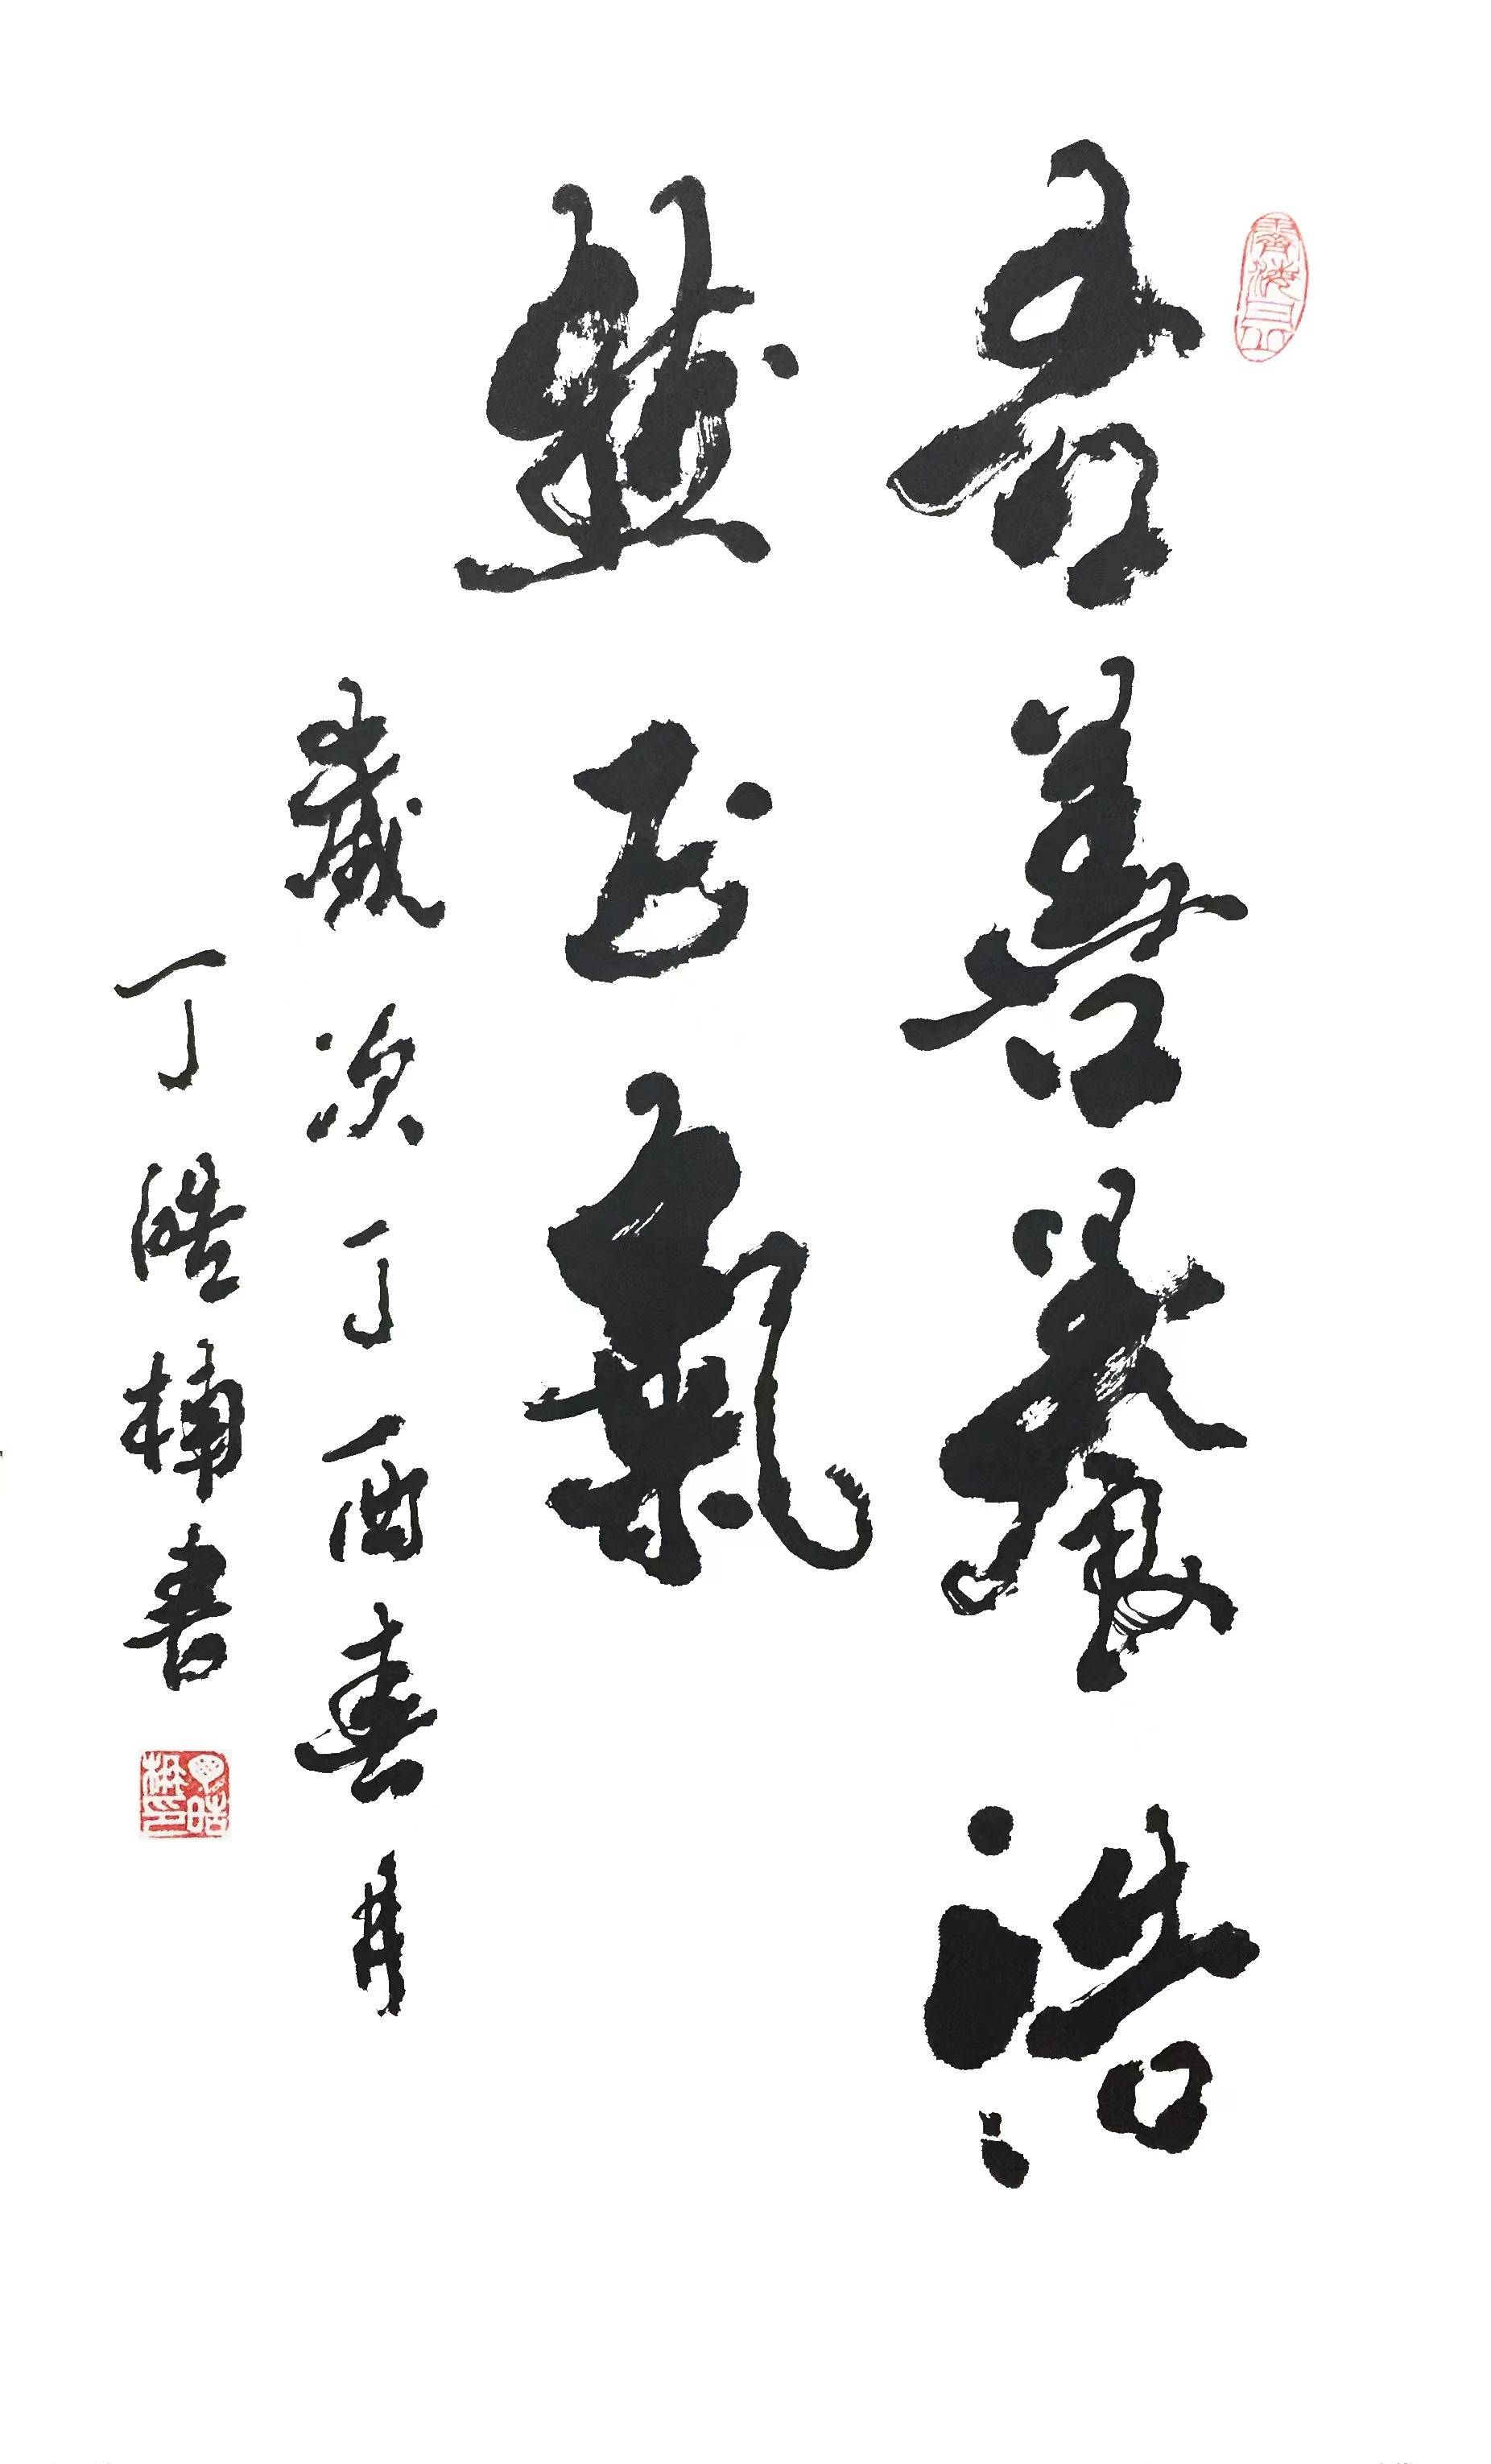 吾善養浩
然正氣
歲次丁酉春月
丁皓楠書